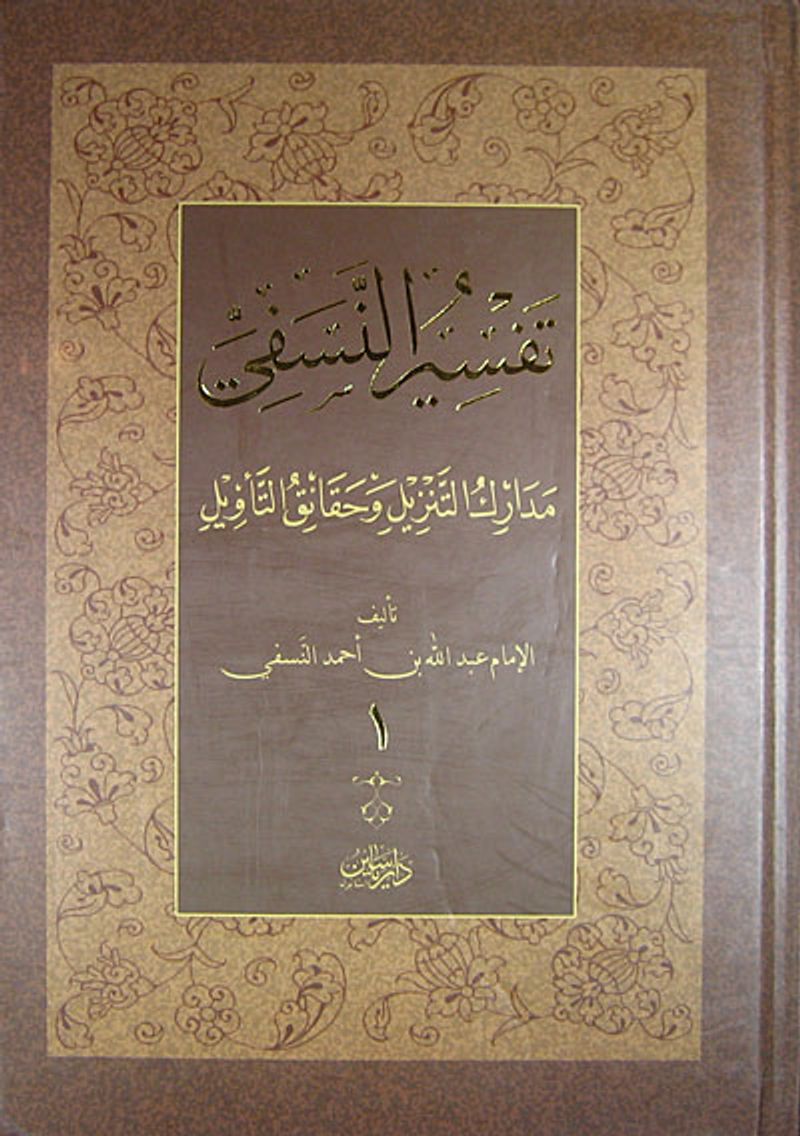 تَفْسِيرُ النَّسَفِيِّ
مَدَارِكُ التَّنْزِيْلِ وَحَقَائِقُ التَّأْوِيْلِ
تأليف
الإمام عبد الله بن أحمد النسفي
١
دار ياسين